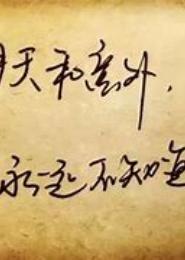 明天和意外，
永远不知道